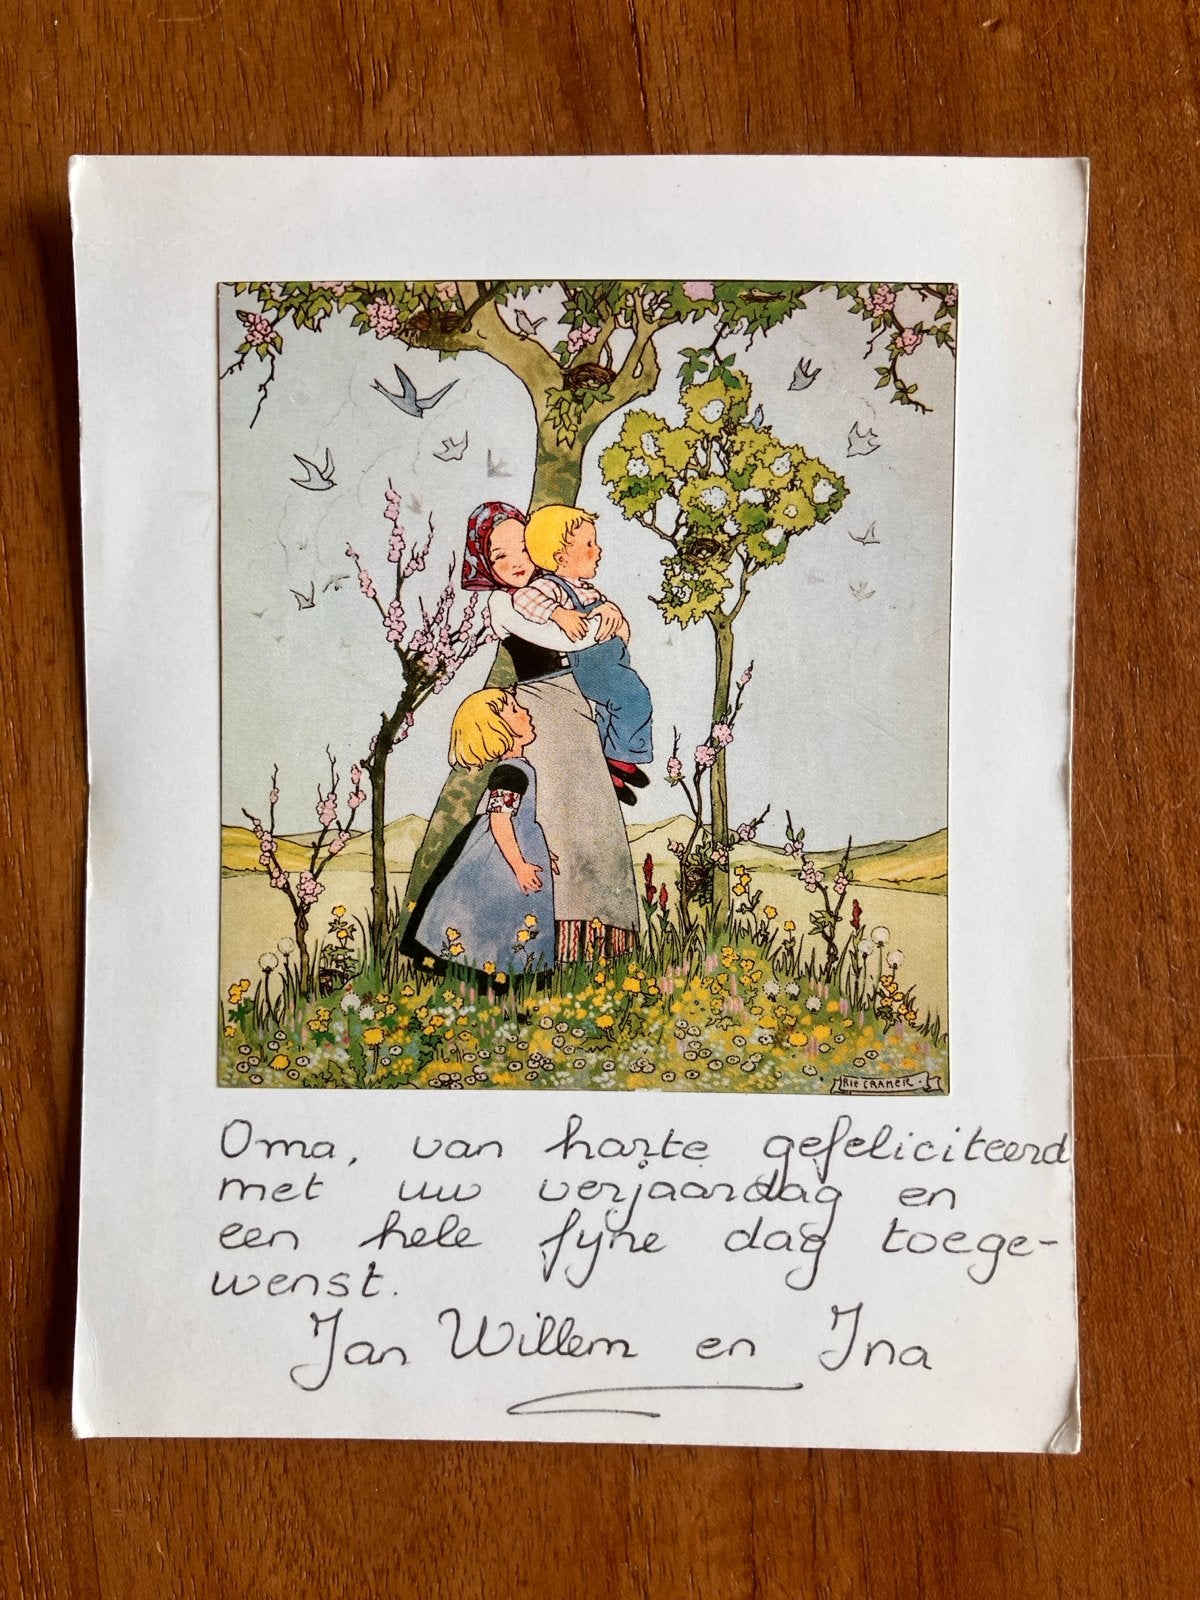 RIE CRAMER.
Oma, van harte gefeliciteerd
met uw verjaardag en
een hele fyne dag toege-
wenst.
Jan Willem en Ina